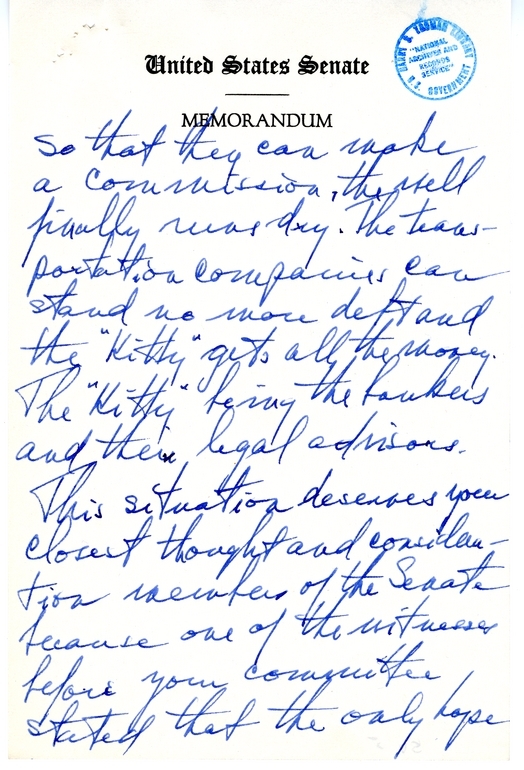 HARRY S. TRUMAN LIBRARY
"NATIONAL
ARCHIVES AND
RECORDS
SERVICE"
U.S. GOVERNMENT
United States Senate
MEMORANDUM
so that they can make
a commission, the well
finally runs dry. The trans-
portation companies can
stand no more deft and
the "Kitty" gets all the money.
The "Kitty" being the bankers
and their legal advisors.
This situation deserves your
closest thought and considera-
tion members of the Senate
because one of the witnesses
before your committee
stated that the only hope